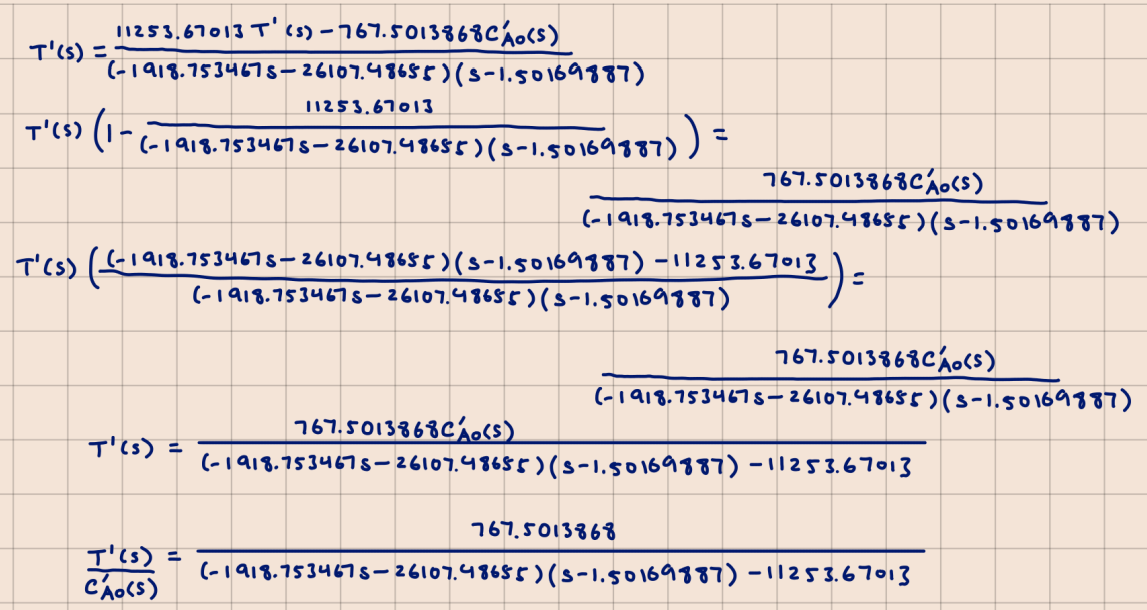 T'(s) = \frac{11253.67013 T'(s) - 767.5013868C'_{A0}(s)}{(-1918.753467s - 26107.48655)(s-1.50169887)}
T'(s) (1 - \frac{11253.67013}{(-1918.753467s - 26107.48655)(s-1.50169887)}) =
\frac{767.5013868C'_{A0}(s)}{(-1918.753467s - 26107.48655)(s-1.50169887)}
T'(s) (\frac{(-1918.753467s - 26107.48655)(s-1.50169887) - 11253.67013}{(-1918.753467s - 26107.48655)(s-1.50169887)}) =
\frac{767.5013868C'_{A0}(s)}{(-1918.753467s - 26107.48655)(s-1.50169887)}
T'(s) = \frac{767.5013868C'_{A0}(s)}{(-1918.753467s - 26107.48655)(s-1.50169887) - 11253.67013}
\frac{T'(s)}{C'_{A0}(s)} = \frac{767.5013868}{(-1918.753467s - 26107.48655)(s-1.50169887) - 11253.67013}